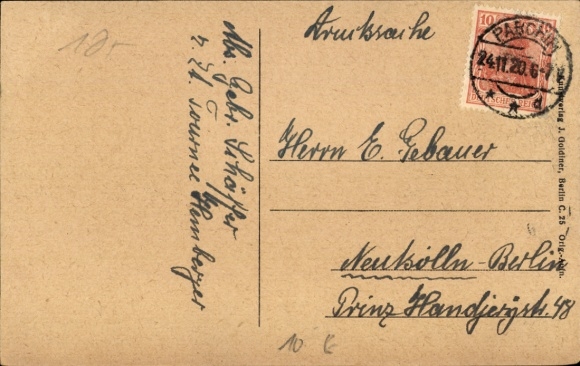 10.-
Abs. Gebr. Schäffer
z. Zt. Tournee Hemberger
Drucksache
10
PARCHIM
24.11.20.6-7
* * d
DEUTSCHES REICH
Herrn E. Gebauer
Neukölln-Berlin
Prinz Handjerystr. 48
Kunstverlag J. Goldiner, Berlin C. 25 Orig.-Aufn.
10 €